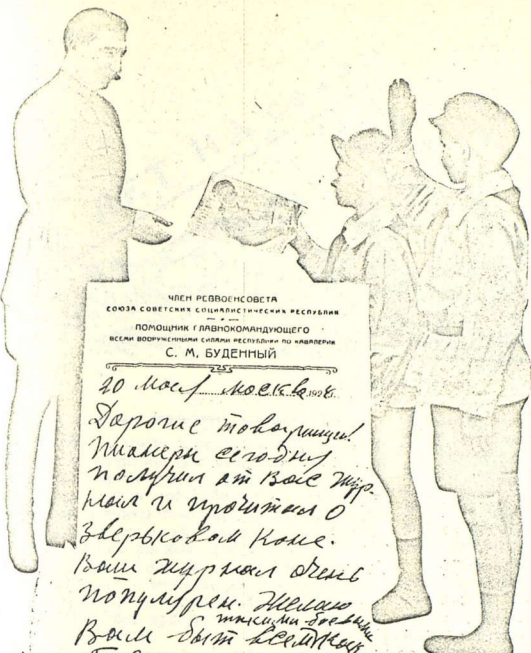 ЧЛЕН РЕВВОЕНСОВЕТА
СОЮЗА СОВЕТСКИХ СОЦИАЛИСТИЧЕСКИХ РЕСПУБЛИК
ПОМОЩНИК ГЛАВНОКОМАНДУЮЩЕГО
ВСЕМИ ВООРУЖЕННЫМИ СИЛАМИ РЕСПУБЛИКИ ПО КАВАЛЕРИИ
С. М. БУДЕННЫЙ
20 Мая Москва
Дорогие товарищи!
Пионеры сегодня
получил от Вас жур-
нал и прочитал о
Зверьковом Коне.
Ваш журнал очень
популярен. Желаю
такими боевыми
Вам быт всем